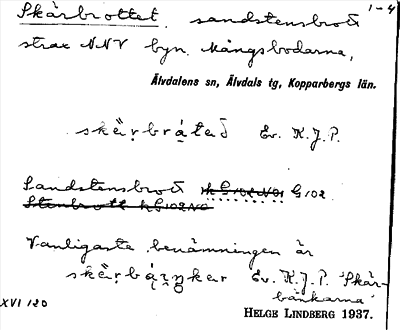 Skärbrottet, sandstensbrott 1-4
strax NNV byn Mångsbodarna,
Älvdalens sn, Älvdals tg, Kopparbergs län.
Ev. K.J.P.
Sandstensbrott G 102
Vanligaste benämningen är
Ev. K.J.P. 'Skär-
bänkarna'
XVI 120
HELGE LINDBERG 1937.